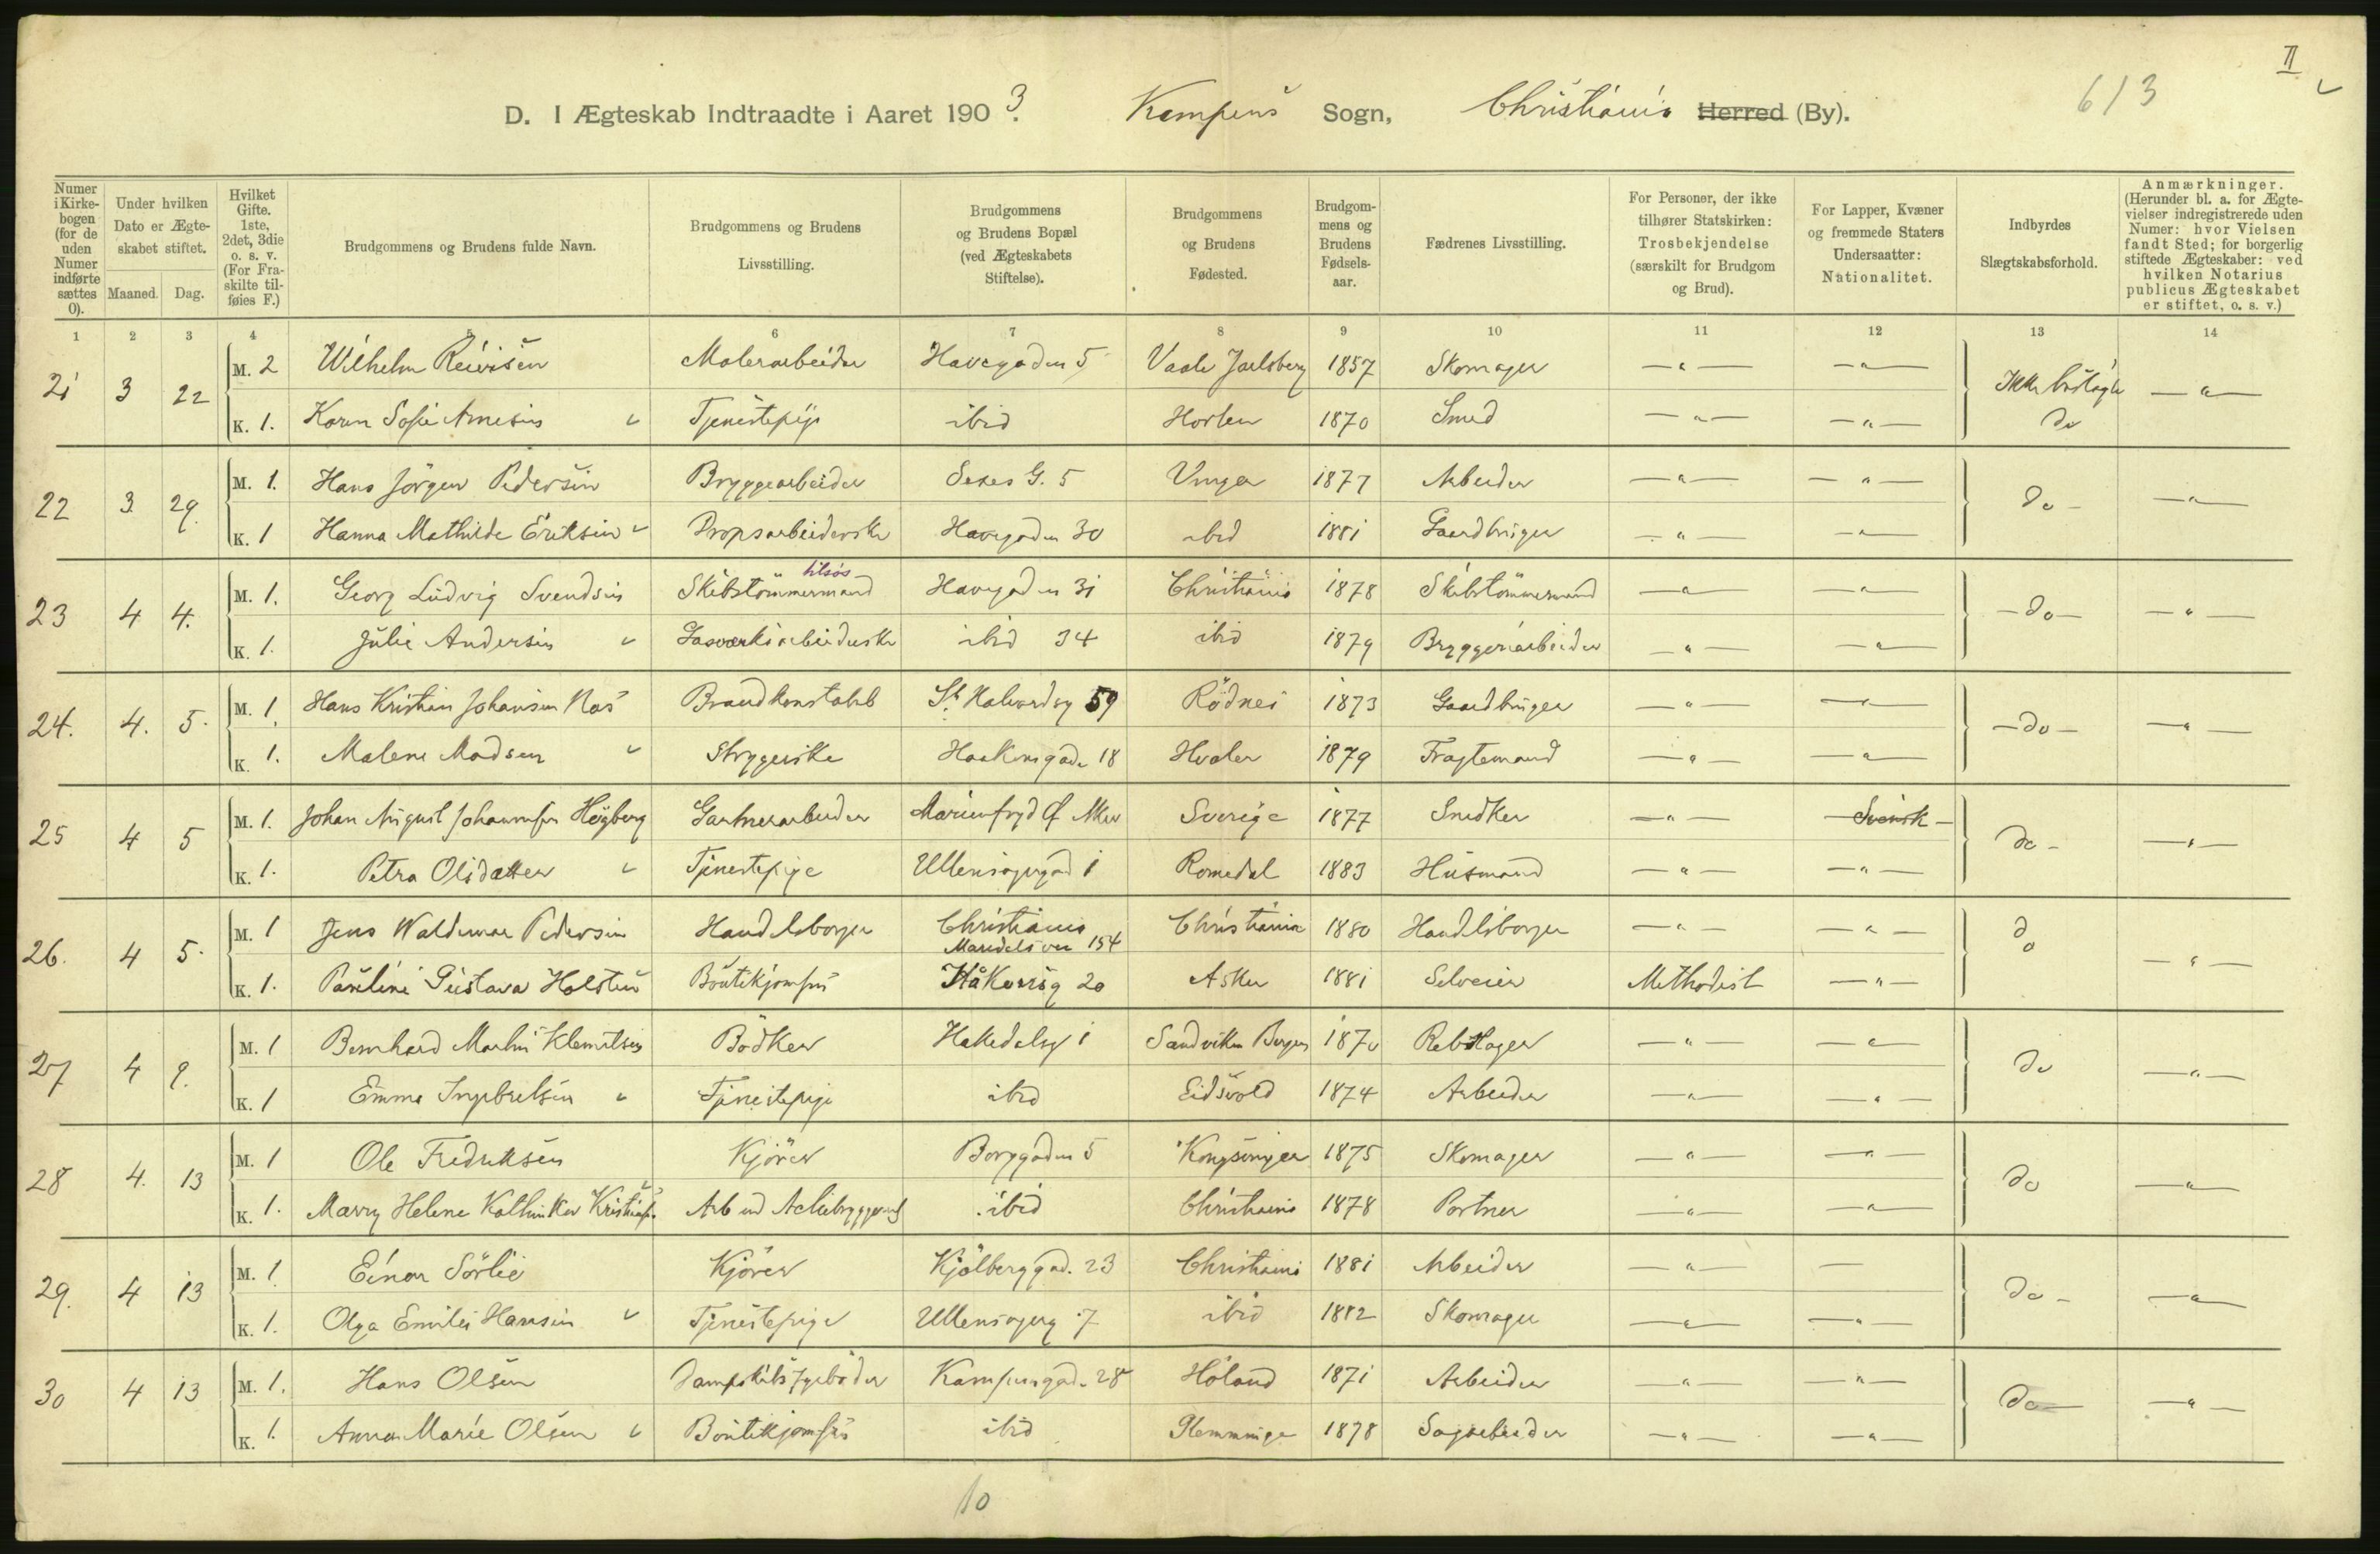 II
613
D. I Ægteskab Indtraadte i Aaret 1903. Kampens Sogn, Christiania Herred (By).
Numer i Kirkebogen (for de uden Numer indførte sættes 0).
Under hvilken Dato er Ægteskabet stiftet.
Maaned. Dag.
Hvilket Gifte. 1ste, 2det, 3die o. s. v. (For Fraskilte tilføies F.)
Brudgommens og Brudens fulde Navn.
Brudgommens og Brudens Livsstilling.
Brudgommens og Brudens Bopæl (ved Ægteskabets Stiftelse).
Brudgommens og Brudens Fødested.
Brudgommens og Brudens Fødselsaar.
Fædrenes Livsstilling.
For Personer, der ikke tilhører Statskirken: Trosbekjendelse (særskilt for Brudgom og Brud).
For Lapper, Kvæner og fremmede Staters Undersaatter: Nationalitet.
Indbyrdes Slægtskabsforhold.
Anmærkninger. (Herunder bl. a. for Ægtevielser indregistrerede uden Numer: hvor Vielsen fandt Sted; for borgerlig stiftede Ægteskaber: ved hvilken Notarius publicus Ægteskabet er stiftet, o. s. v.)
1 2 3 4 5 6 7 8 9 10 11 12 13 14
21 3 22 M. 2 Wilhelm Malerarbeider Havegaden 5 Vaale Jarlsberg 1857 Skomager — " — — " — Ikke beslægt. — " —
K. 1. Karen Sofie Arnesen Tjenestepige ibid Horten 1870 Smed — " — — " — do
22 3 29. M. 1. Hans Jörgen Pedersen Bryggearbeider Sexes G. 5 Vinger 1877 Arbeider — " — — " — do — — " —
K. 1 Hanna Mathilde Eriksen Propsarbeiderske Havegaden 30 ibid 1881 Gaardbruger — " — — " —
23 4 4. M. 1. Georg Ludvig Svendsen Skibstömmermand tilsøs Havegaden 31 Christiania 1878 Skibstömmermand — " — — " — — do — — " —
K. 1. Julie Andersen Gasværksarbeiderske ibid 34 ibid 1879 Bryggeriarbeider — " — — " —
24. 4. 5. M. 1. Hans Kristian Johansen Næs Brandkonstabel St. Halvardsg 59 Rödnes 1873 Gaardbruger — " — — " — — do — — " —
K. 1. Malene Madsen Strygerske Haakonsgade 18 Hvaler 1879 Fragtemand — " — — " —
25 4 5 M. 1. Johan August Johannesen Högberg Gartnerarbeider Marienfryd Ø Aker Sverige 1877 Snedker — " — Svensk do — — " —
K. 1. Petra Olsdatter Tjenestepige Ullensagergad 1 Romedal 1883 Husmand — " — — " —
26. 4 5. M. 1 Jens Waldemar Pedersen Handelsborger Christiania Maridalsvei 154 Christiania 1880 Handelsborger — " — — " — do — " —
K. 1. Pauline Gustava Holsten Boutikjomfru Håkonsg 20 Asker 1881 Selveier Methodist — " —
27 4 9. M. 1 Bernhard Martin Klemetsen Bödker Hakedalsg 1 Sandviken Bergen 1870 Rebslager — " — — " — do — " —
K. 1 Emma Ingebretsen Tjenestepige ibid Eidsvold 1874 Arbeider — " — — " —
28 4. 13 M. 1 Ole Fredriksen Kjörer Borggaden 5 Kongsvinger 1875 Skomager — " — — " — do — " —
K. 1. Marry Helene Kathinka Kristians. Arb ved ibid Christiania 1878 Portner — " — — " —
29. 4 13 M. 1 Einar Sörlie Kjörer Kjölberggad. 23 Christiania 1881 Arbeider — " — — do — — " —
K. 1. Olga Emilie Hansen Tjenestepige Ullensagerg 7 ibid 1882 Skomager — " — — " —
30 4 13 M. 1. Hans Olsen Dampskibsfyrböder Kampengad. 28 Höland 1871 Arbeider — " — — " — do — — " —
K. 1. Anna Marie Olsen Boutikjomfru ibid Glemminge 1878 Sagarbeider — " — — " —
10